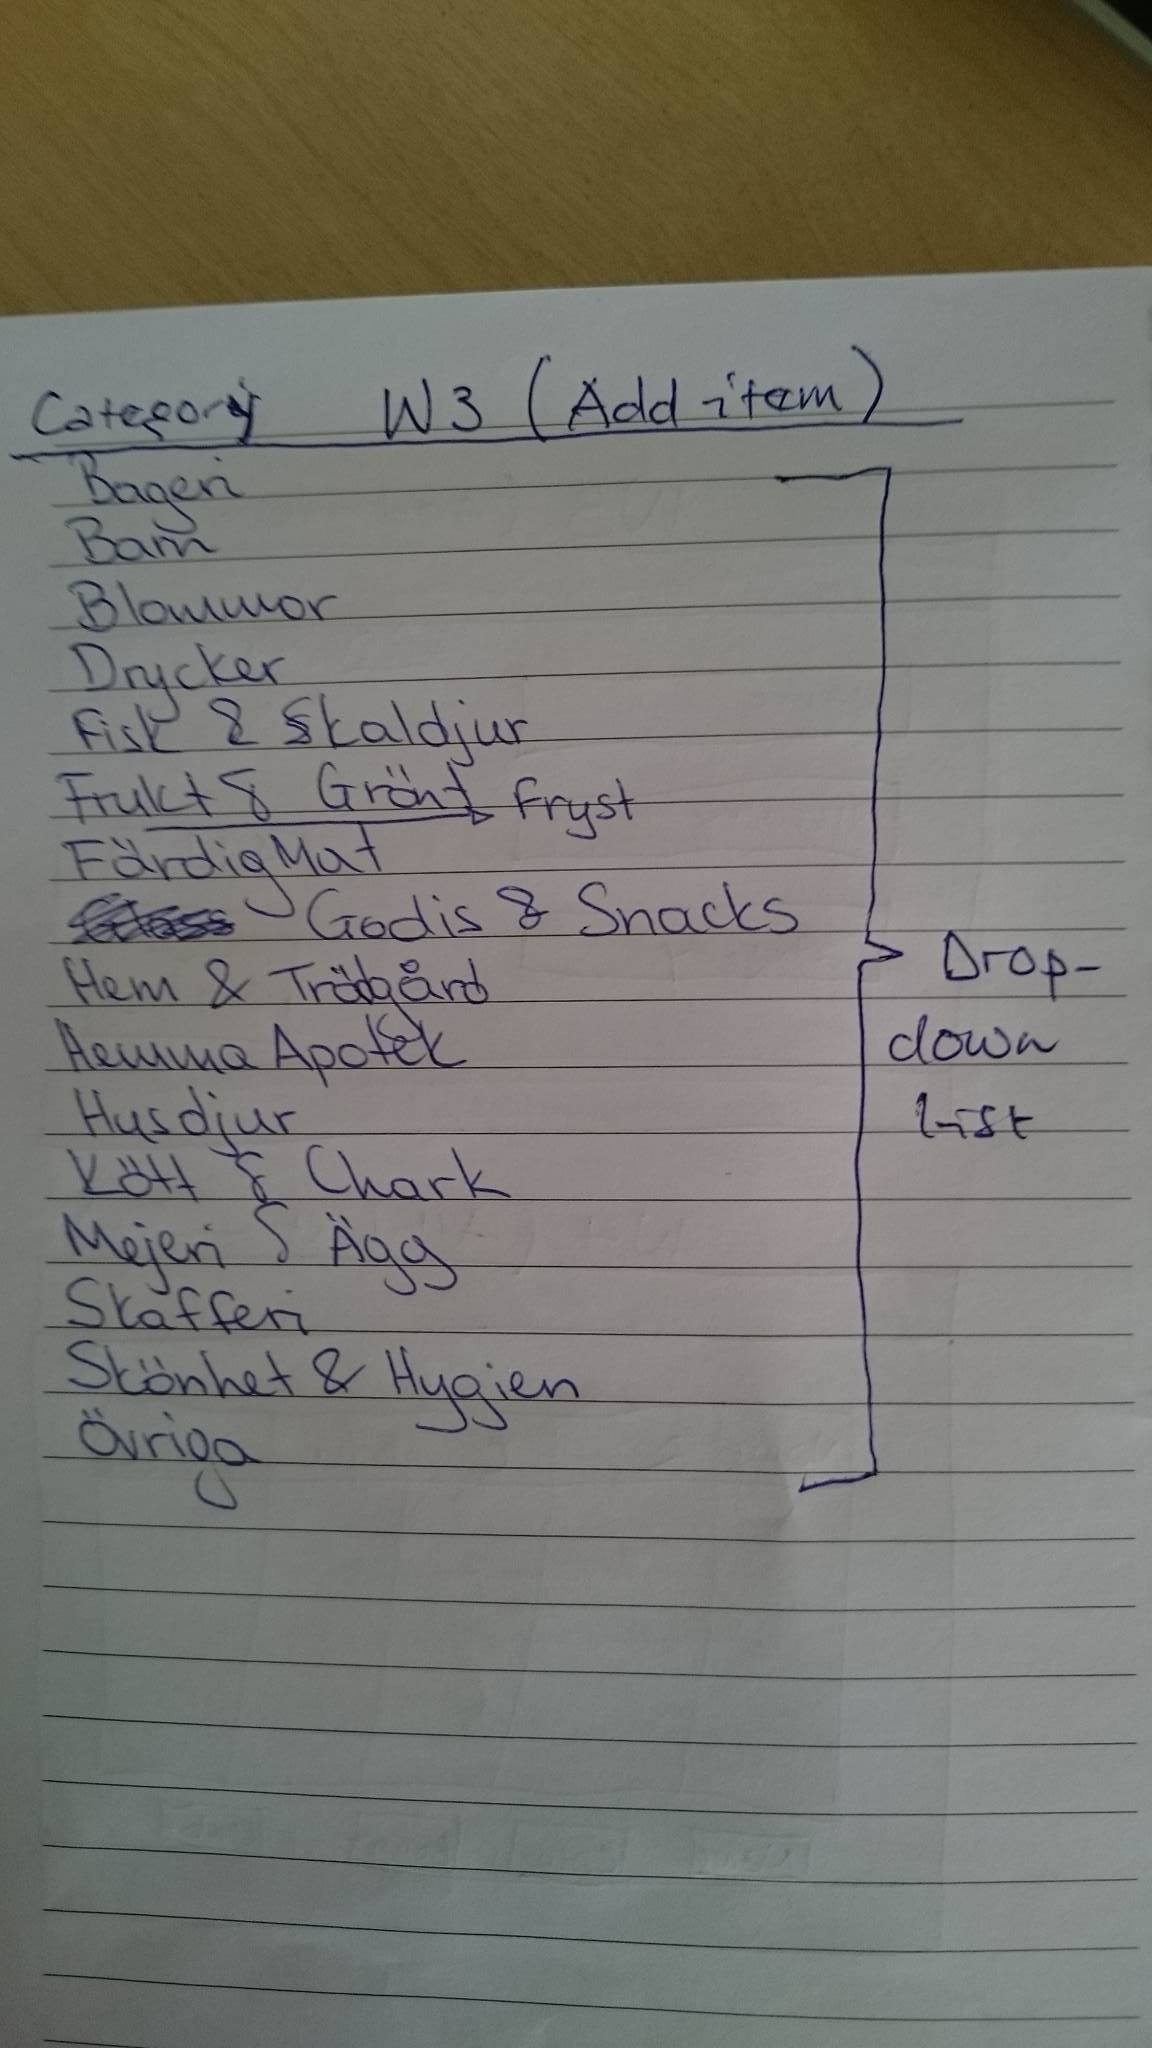 Category W3 (Add item)
Bageri
Barn
Blommor
Drycker
Fisk & Skaldjur
Frukt & Grönt Fryst
FärdigMat
Godis & Snacks
Hem & Trädgård
Hemma Apotek
Husdjur
Kött & Chark
Mejeri & Ägg
Skafferi
Skönhet & Hygien
Övriga
Drop-
down
list